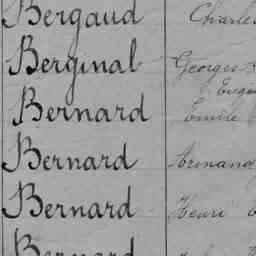 Bergaud Charles
Berginal Georges
Eugen
Bernard Emile
Bernard Armand
Bernard Henri
Bernard